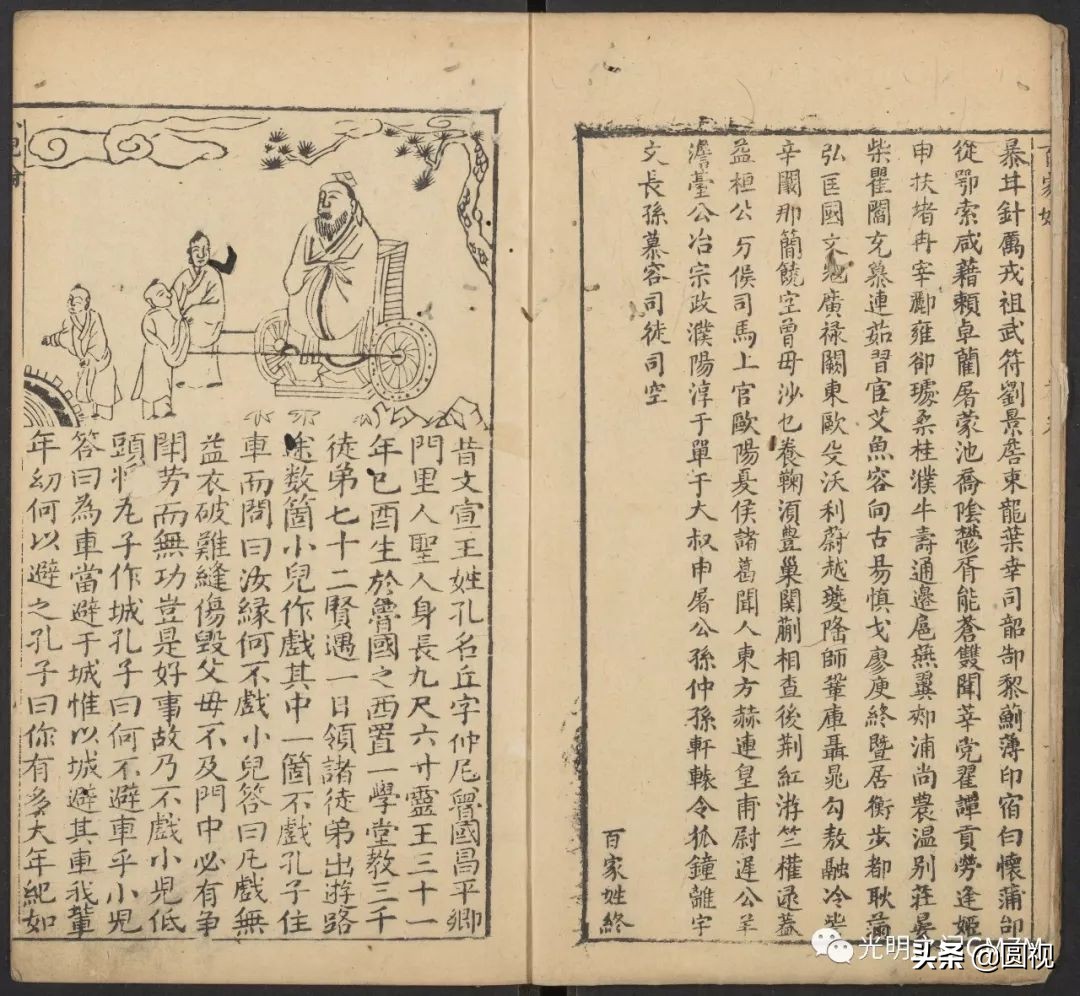 百家姓
暴甘針厲戎祖武符劉景詹束龍葉幸司韶郜黎薊薄印宿白懷蒲邰
從鄂索咸藉賴卓藺屠蒙池喬陰鬱胥能蒼雙聞莘党翟譚貢勞逄姬
申扶堵冉宰酈雍卻璩桑桂濮牛壽通邊扈燕冀郟浦尚農温別莊晏
柴瞿閻充慕連茹習宦艾魚容向古易慎戈廖庾終暨居衡步都耿滿
弘匡國文廣祿闕東歐殳沃利蔚越夔隆師鞏庫聶晁勾敖融冷訾
辛闞那簡饒空曾毋沙乜養鞠須豐巢關蒯相查後荊紅游竺權逯蓋
益桓公万俟司馬上官歐陽夏侯諸葛聞人東方赫連皇甫尉遲公羊
澹臺公冶宗政濮陽淳于單于大叔申屠公孫仲孫軒轅令狐鐘離宇
文長孫慕容司徒司空
百家姓終
昔文宣王姓孔名丘字仲尼魯國昌平鄉
門里人聖人身長九尺六寸靈王三十一
年己酉生於魯國之西置一學堂教三千
徒弟七十二賢遇一日領諸徒弟出遊路
途数箇小兒作戲其中一箇不戲孔子住
車而問曰汝緣何不戲小兒答曰凡戲無
益衣破難縫傷毀父母不及門中必有爭
鬧劳而無功豈是好事故乃不戲小児低
頭将瓦子作城孔子曰何不避車乎小児
答曰為車當避于城惟以城避其車我輩
年幼何以避之孔子曰你有多大年紀如
光明文阅GMZM
头条 @圆视